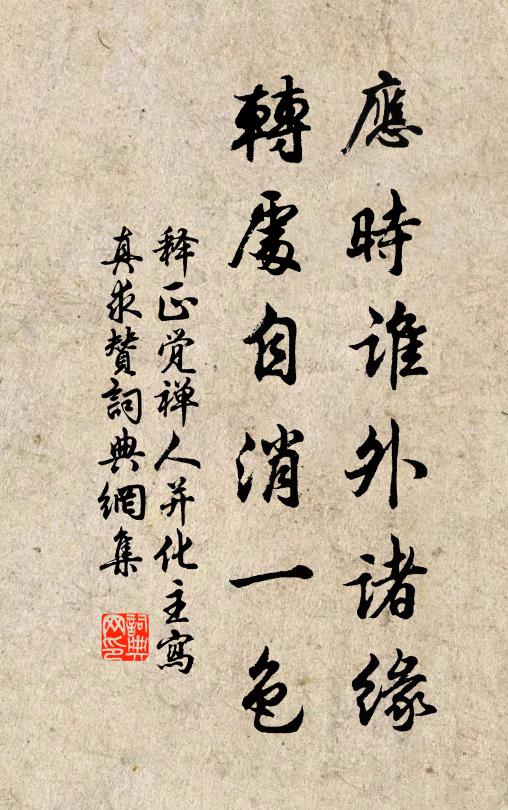 應時誰外諸緣
轉處自消一色
释正觉禅人并化主寫
真求赞詞典網集
詞典网印